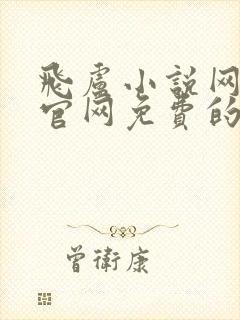 飛盧小説网
官网免費的
曾衛康